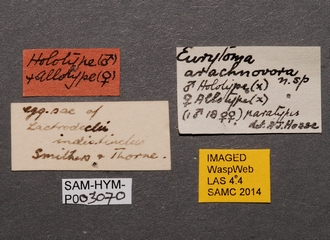 Holotype (♂)
& Allotype (♀)
egg-sac of
Lactrodectus
indistinctus
Smithers & Thorne.
SAM-HYM-
P003070
Eurytoma
arachnovora n.sp
♂ Holotype (x)
♀ Allotype (x) "
(1♂ 18 ♀♀) paratypes
det. P.J. Hesse
IMAGED
WaspWeb
LAS 4.4
SAMC 2014